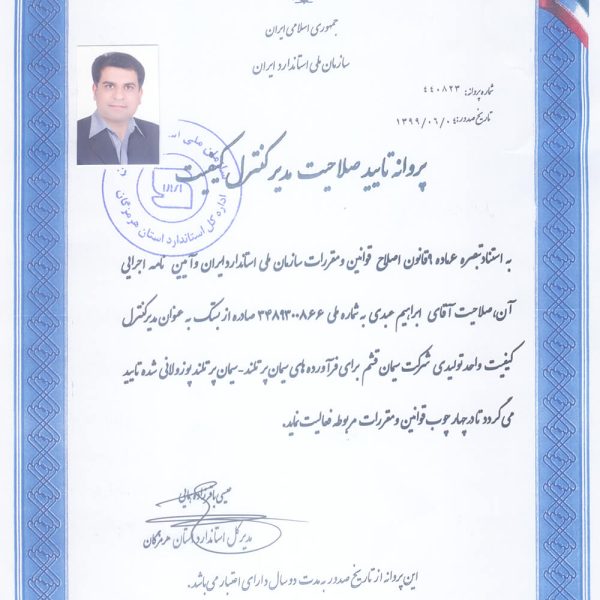 جمهوری اسلامی ایران
سازمان ملی استاندارد ایران
شماره پروانه: ۴۴۰۸۲۳
تاریخ صدور: ۱۳۹۹/۰۶/۰۴
پروانه تایید صلاحیت مدیر کنترل کیفیت
اداره کل استاندارد استان هرمزگان
به استناد تبصره ۴ ماده ۹ قانون اصلاح قوانین و مقررات سازمان ملی استاندارد ایران و آیین نامه اجرایی
آن، صلاحیت آقای ابراهیم عبدی به شماره ملی ۳۴۸۹۳۰۰۸۶۶ صادره از بستک به عنوان مدیر کنترل
کیفیت واحد تولیدی شرکت سیمان قشم برای فرآورده های سیمان پرتلند-سیمان پرتلند پوزولانی شده تایید
می گردد تا در چهار چوب قوانین و مقررات مربوطه فعالیت نماید.
مدیر کل استاندارد استان هرمزگان
این پروانه از تاریخ صدور به مدت دو سال دارای اعتبار می باشد.